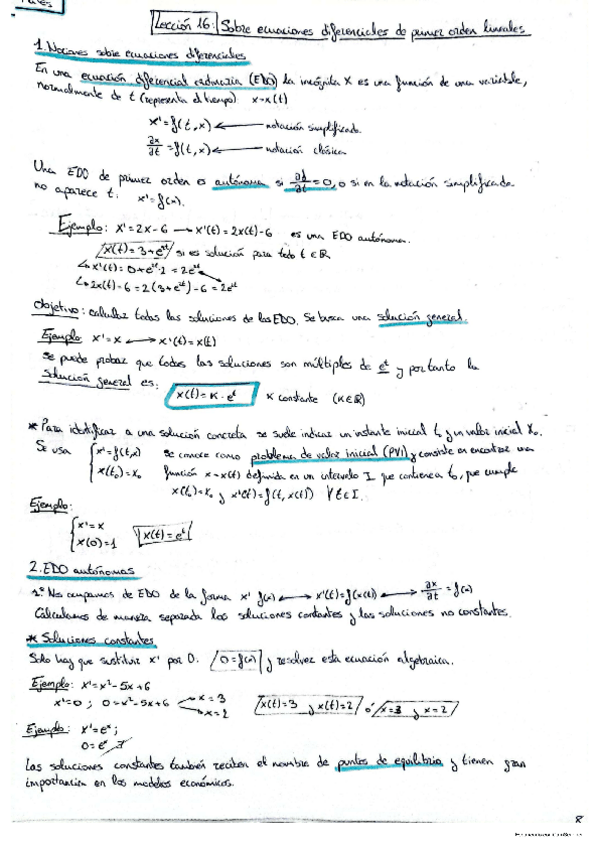 Lección 16: Sobre ecuaciones diferenciales de primer orden lineales
1. Nociones sobre ecuaciones diferenciales
En una ecuación diferencial ordinaria (EDO) la incógnita x es una función de una variable,
normalmente de t (representa el tiempo) x=x(t)
x'=f(t,x) ← notación simplificada
∂x/∂t = f(t,x) ← notación clásica
Una EDO de primer orden es autónoma si ∂f/∂t = 0, o si en la notación simplificada
no aparece t. x'=f(x).
Ejemplo: x'=2x-6 → x'(t)=2x(t)-6 es una EDO autónoma.
x(t)=3+e^2t si es solución para todo t∈ℝ
↳ x'(t)=0+e^2t·2=2e^2t
↳ 2x(t)-6=2(3+e^2t)-6=2e^2t
Objetivo: calcular todas las soluciones de las EDO. Se busca una solución general.
Ejemplo: x'=x ↔ x'(t)=x(t)
Se puede probar que todas las soluciones son múltiples de e^t y por tanto la
solución general es: x(t)=K·e^t K constante (K∈ℝ)
* Para identificar a una solución concreta se suele indicar un instante inicial t₀ y un valor inicial x₀.
Se usa { x'=f(t,x) se conoce como problema de valor inicial (PVI) y consiste en encontrar una
x(t₀)=x₀ función x=x(t) definida en un intervalo I que contiene a t₀, que cumple
x(t₀)=x₀ y x'(t)=f(t,x(t)) ∀t∈I.
Ejemplo:
{ x'=x
x(0)=1 x(t)=e^t
2. EDO autónomas
1º Nos ocupamos de EDO de la forma x' f(x) ↔ x'(t)=f(x(t)) ↔ ∂x/∂t = f(x)
Calculamos de manera separada las soluciones constantes y las soluciones no constantes.
* Soluciones constantes
Solo hay que sustituir x' por 0. 0=f(x) y resolver esta ecuación algebraica.
Ejemplo: x'=x²-5x+6
x'=0; 0=x²-5x+6 → x=3 → x=2 x(t)=3 y x(t)=2 ó x=3 y x=2
Ejemplo: x'=e^x;
0=e^x
Las soluciones constantes también reciben el nombre de puntos de equilibrio y tienen gran
importancia en los modelos económicos.
8